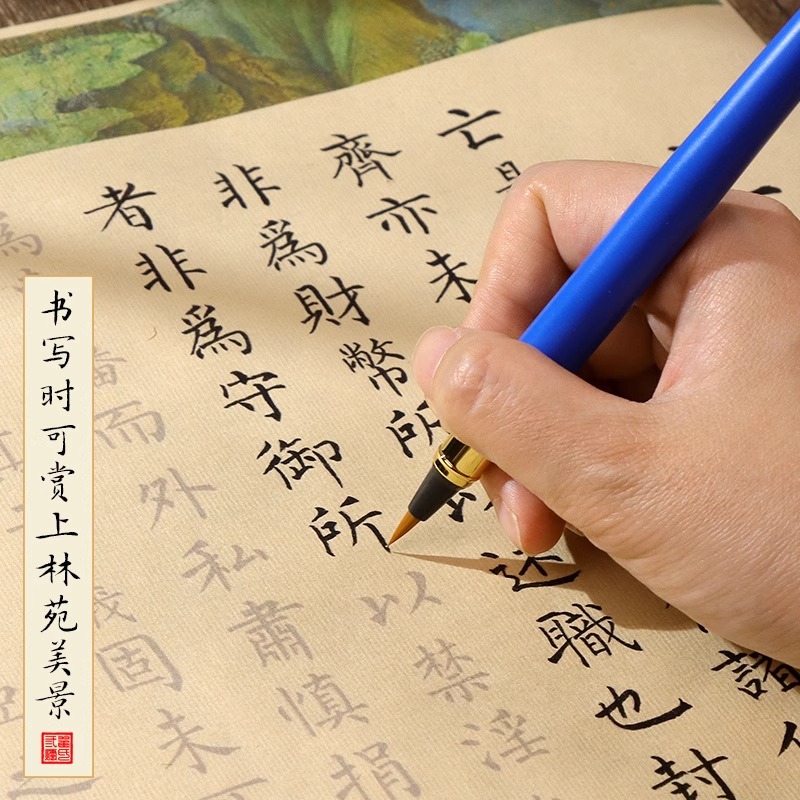 亡是
齊亦未
諸
非爲財幣所以述職也封
者非爲守御所以禁淫
而外私肅慎捐
義固未
书写时可赏上林苑美景